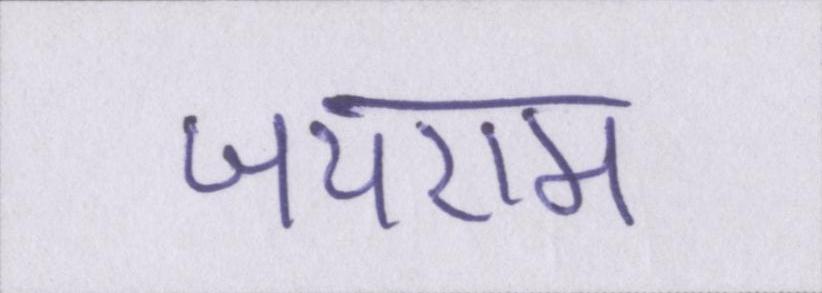 जयराम